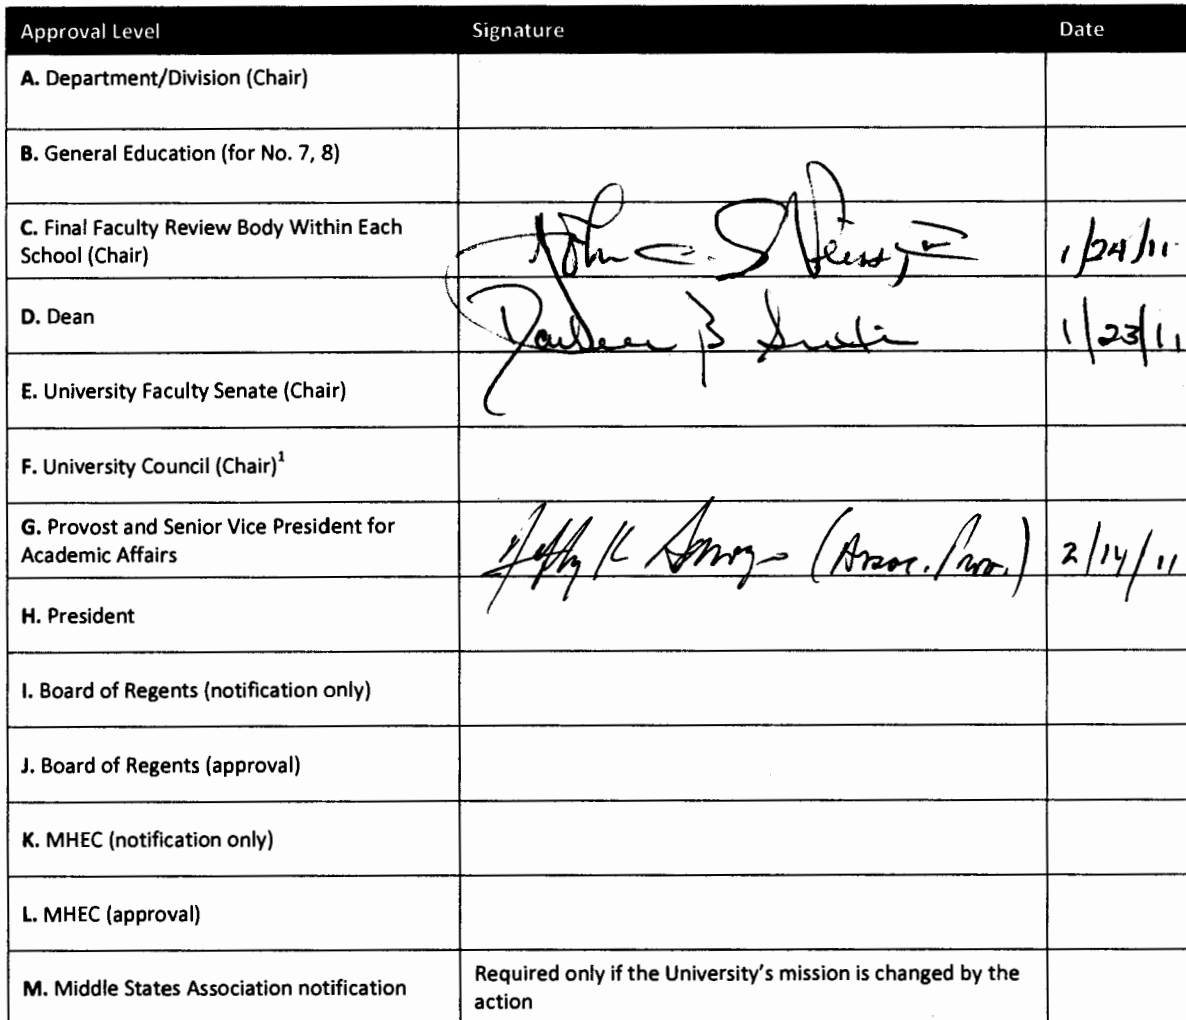 Approval Level Signature Date
A. Department/Division (Chair)
B. General Education (for No. 7, 8)
C. Final Faculty Review Body Within Each
School (Chair)
John C. Weiss, III 1/24/11
D. Dean
B 1/23/11
E. University Faculty Senate (Chair)
F. University Council (Chair)¹
G. Provost and Senior Vice President for
Academic Affairs
K (Assoc. Prov.) 2/14/11
H. President
I. Board of Regents (notification only)
J. Board of Regents (approval)
K. MHEC (notification only)
L. MHEC (approval)
M. Middle States Association notification
Required only if the University's mission is changed by the
action